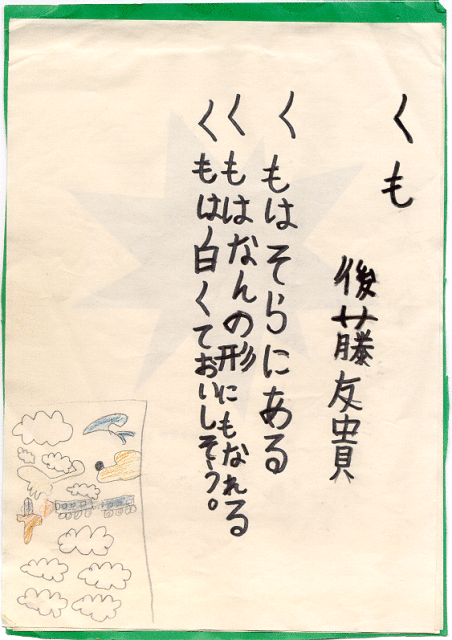 くも
後藤友貴
くもはそらにある
くもはなんの形にもなれる
くもは白くておいしそう。